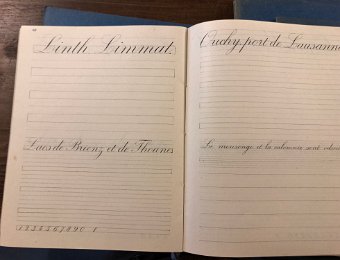 Linth Limmat.
Lacs de Brienz et de Thounes
1 2 3 4 5 6 7 8 9 0
Ouchy, port de Lausanne
Le mensonge et la calomnie sont